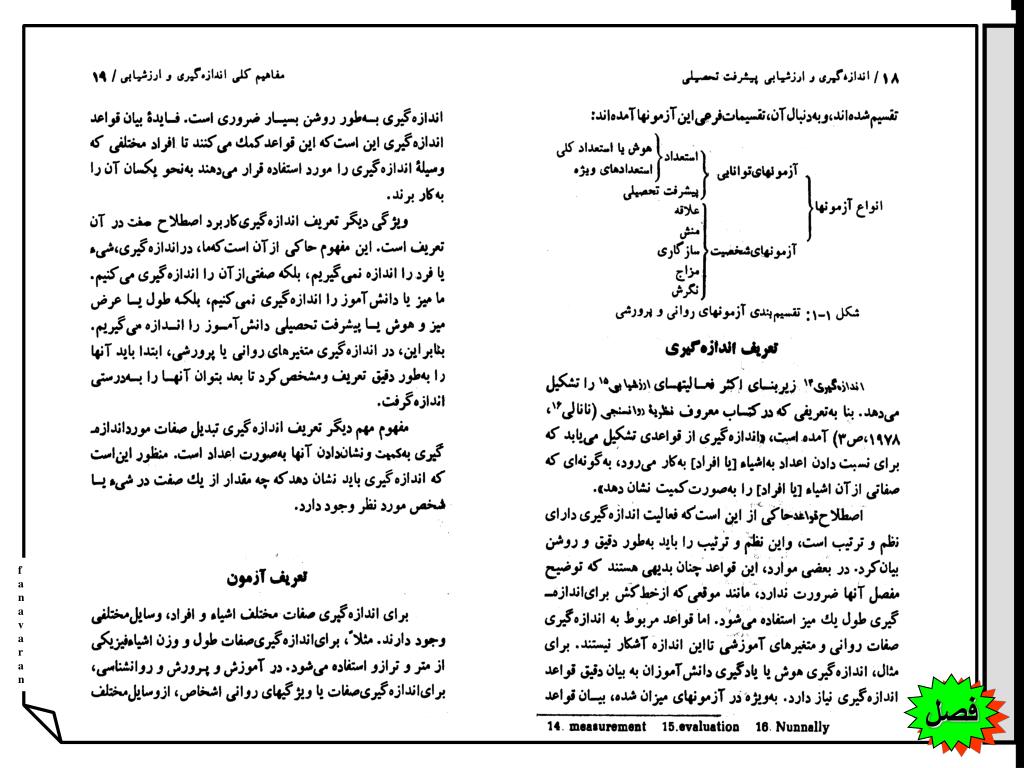 ۱۸ / اندازه‌گیری و ارزشیابی پیشرفت تحصیلی
تقسیم شده‌اند، و به دنبال آن، تقسیمات فرعی این آزمونها آمده‌اند:
انواع آزمونها
آزمونهای توانایی
استعداد
هوش یا استعداد کلی
استعدادهای ویژه
پیشرفت تحصیلی
آزمونهای شخصیت
علاقه
منش
سازگاری
مزاج
نگرش
شکل ۱-۱: تقسیم‌بندی آزمونهای روانی و پرورشی
تعریف اندازه‌گیری
اندازه‌گیری۱۴ زیربنـای اکثر فعـالیتهـای ارزشیابی۱۵ را تشکیل
می‌دهد. بنا به‌تعریفی که در کتـاب معروف نظریهٔ روانسنجی (نانالی۱۶،
۱۹۷۸،ص۳) آمده است، «اندازه‌گیری از قواعدی تشکیل می‌یابد که
برای نسبت دادن اعداد به‌اشیاء [یا افراد] به‌کار می‌رود، به‌گونه‌ای که
صفاتی از آن اشیاء [یا افراد] را به‌صورت کمیت نشان دهد».
اصطلاح قواعد حاکی از این است که فعالیت اندازه‌گیری دارای
نظم و ترتیب است، و این نظم و ترتیب را باید به‌طور دقیق و روشن
بیان کرد. در بعضی موارد، این قواعد چنان بدیهی هستند که توضیح
مفصل آنها ضرورت ندارد، مانند موقعی که از خط‌کش برای اندازه‌ـ
گیری طول یك میز استفاده می‌شود. اما قواعد مربوط به اندازه‌گیری
صفات روانی و متغیرهای آموزشی تا این اندازه آشکار نیستند. برای
مثال، اندازه‌گیری هوش یا یادگیری دانش‌آموزان به بیان دقیق قواعد
اندازه‌گیری نیاز دارد. به‌ویژه در آزمونهای میزان شده، بیـان قواعد
14. measurement 15.evaluation 16. Nunnally
مفاهیم کلی اندازه‌گیری و ارزشیابی / ۱۹
اندازه‌گیری بـه‌طور روشن بسیـار ضروری است. فـایدهٔ بیان قواعد
اندازه‌گیری این است که این قواعد کمك می‌کنند تا افراد مختلفی که
وسیلهٔ اندازه‌گیری را مورد استفاده قرار می‌دهند به‌نحو یکسان آن را
به‌کار برند.
ویژگی دیگر تعریف اندازه‌گیری کاربرد اصطلاح صفت در آن
تعریف است. این مفهوم حاکی از آن است که ما، در اندازه‌گیری، شیء
یا فرد را اندازه نمی‌گیریم، بلکه صفتی از آن را اندازه‌گیری می‌کنیم.
ما میز یا دانش‌آموز را اندازه‌گیری نمی‌کنیم، بلکـه طول یـا عرض
میز و هوش یـا پیشرفت تحصیلی دانش‌آمـوز را انـدازه می‌گیریم.
بنابراین، در اندازه‌گیری متغیرهای روانی یا پرورشی، ابتدا باید آنها
را به‌طور دقیق تعریف و مشخص کرد تا بعد بتوان آنهـا را بـه‌درستی
اندازه گرفت.
مفهوم مهم دیگر تعریف اندازه‌گیری تبدیل صفات مورد اندازه‌ـ
گیری به‌کمیت و نشان‌دادن آنها به‌صورت اعداد است. منظور این است
که اندازه‌گیری باید نشان دهد که چه مقدار از یك صفت در شیء یـا
شخص مورد نظر وجود دارد.
تعریف آزمون
برای اندازه‌گیری صفات مختلف اشیاء و افراد، وسایل مختلفی
وجود دارند. مثلاً، برای اندازه‌گیری صفات طول و وزن اشیاء فیزیکی
از متر و ترازو استفاده می‌شود. در آموزش و پـرورش و روانشناسی،
برای اندازه‌گیری صفات یا ویژگیهای روانی اشخاص، از وسایل مختلف
fanavaran
فصل